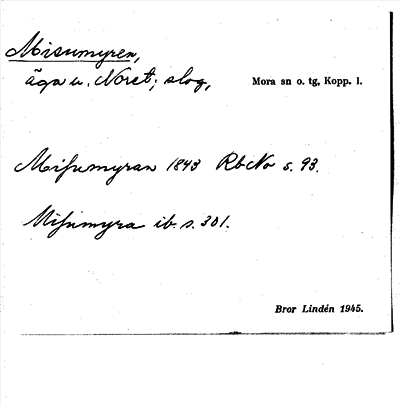 Misumyren,
äga u. Noret; slog,
Mora sn o. tg, Kopp. l.
Misumyran 1843 Rb No s. 93.
Misumyra ib. s. 301.
Bror Lindén 1945.